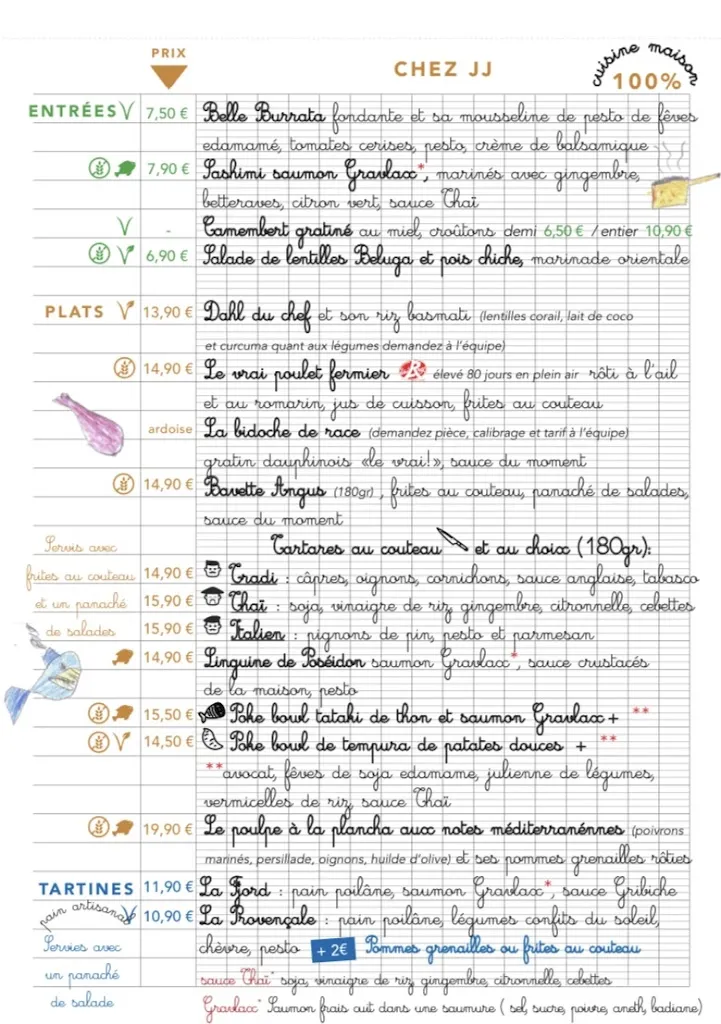 PRIX
CHEZ JJ
cuisine maison
100%
ENTRÉES 7,50 € Belle Burrata fondante et sa mousseline de pesto de fêves
edamamé, tomates cerises, pesto, crème de balsamique
7,90 € Sashimi saumon Gravlax*, marinés avec gingembre,
betteraves, citron vert, sauce Thaï
- Camembert gratiné au miel, croûtons demi 6,50 € / entier 10,90 €
6,90 € Salade de lentilles Beluga et pois chiche, marinade orientale
PLATS 13,90 € Dahl du chef et son riz basmati (lentilles corail, lait de coco
et curcuma quant aux légumes demandez à l'équipe)
14,90 € Le vrai poulet fermier élevé 80 jours en plein air rôti à l'ail
et au romarin, jus de cuisson, frites au couteau
ardoise La bidoche de race (demandez pièce, calibrage et tarif à l'équipe)
gratin dauphinois «le vrai!», sauce du moment
14,90 € Bavette Angus (180gr), frites au couteau, panaché de salades,
sauce du moment
Tartares au couteau et au choix (180gr):
Servis avec
frites au couteau
et un panaché
de salades
14,90 € Tradi : câpres, oignons, cornichons, sauce anglaise, tabasco
15,90 € Thaï : soja, vinaigre de riz, gingembre, citronnelle, cebettes
15,90 € Italien : pignons de pin, pesto et parmesan
14,90 € Linguine de Poséidon saumon Gravlax*, sauce crustacés
de la maison, pesto
15,50 € Poke bowl tataki de thon et saumon Gravlax+ **
14,50 € Poke bowl de tempura de patates douces + **
**avocat, fêves de soja edamame, julienne de légumes,
vermicelles de riz, sauce Thaï
19,90 € Le poulpe à la plancha aux notes méditerranénnes (poivrons
marinés, persillade, oignons, huilde d'olive) et ses pommes grenailles rôties
TARTINES 11,90 € La Fjord : pain poilâne, saumon Gravlax*, sauce Gribiche
pain artisanal 10,90 € La Provençale : pain poilâne, légumes confits du soleil,
chèvre, pesto + 2€ Pommes grenailles ou frites au couteau
Servies avec
un panaché
de salade
sauce Thaï* soja, vinaigre de riz, gingembre, citronnelle, cebettes
Gravlax* Saumon frais cuit dans une saumure ( sel, sucre, poivre, aneth, badiane)